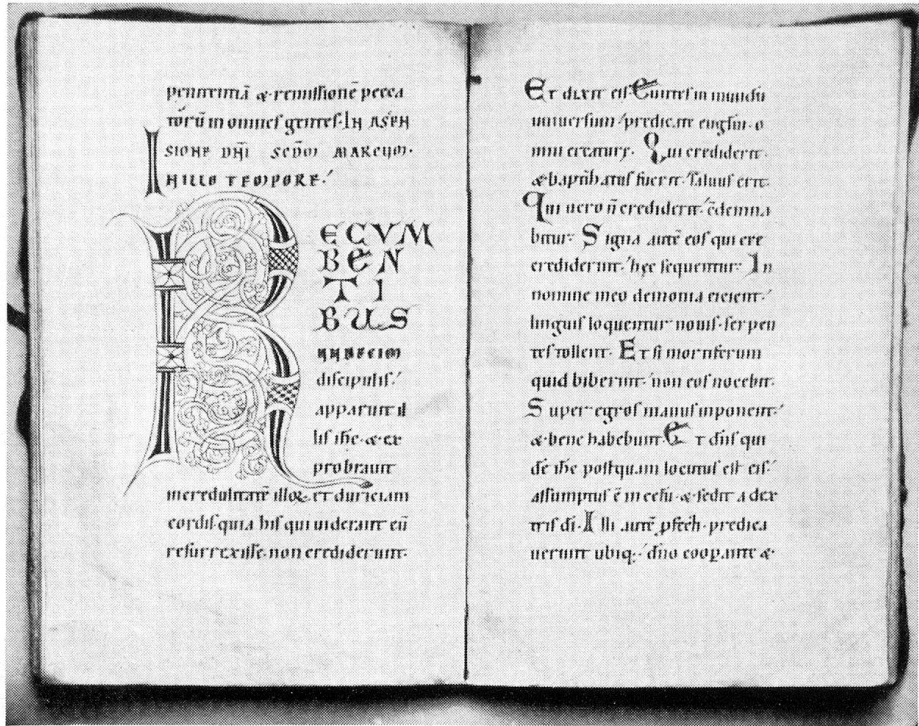 penitentiā & remissionē pecca
torū in omnes gentes. IN ASCEN
SIONE DN̄I SCDM̄ MARCUM.
IN ILLO TEMPORE.
RECVM
BEN
TI
BUS
UNDECIM
discipulis.
apparuit il
lis ih̄c. & ex
probrauit
incredulitatē illoꝝ. et duriciam
cordis quia his qui uiderant eū
resurrexisse. non crediderunt.
Et dixit eis Euntes in mundū
uniuersum / predicate eugl̄m. o
mni creaturę. Qui crediderit.
& baptizatus fuerit. saluus erit.
Qui uero n̄ crediderit. c̄demna
bitur. Signa autē eos qui cre
crediderint. hęc sequentur. In
nomine meo demonia eicient.
linguis loquentur nouis. serpen
tes tollent. Et si mortiferum
quid biberint. non eos nocebit.
Super egros manus inponent.
& bene habebunt. Et dn̄s qui
dē ih̄c postquam locutus est eis.
assumptus ē in celū. & sedit a dex
tris dī. Illi autē p̄fecti. predica
uerunt ubiq;. dn̄o coop̱ante &